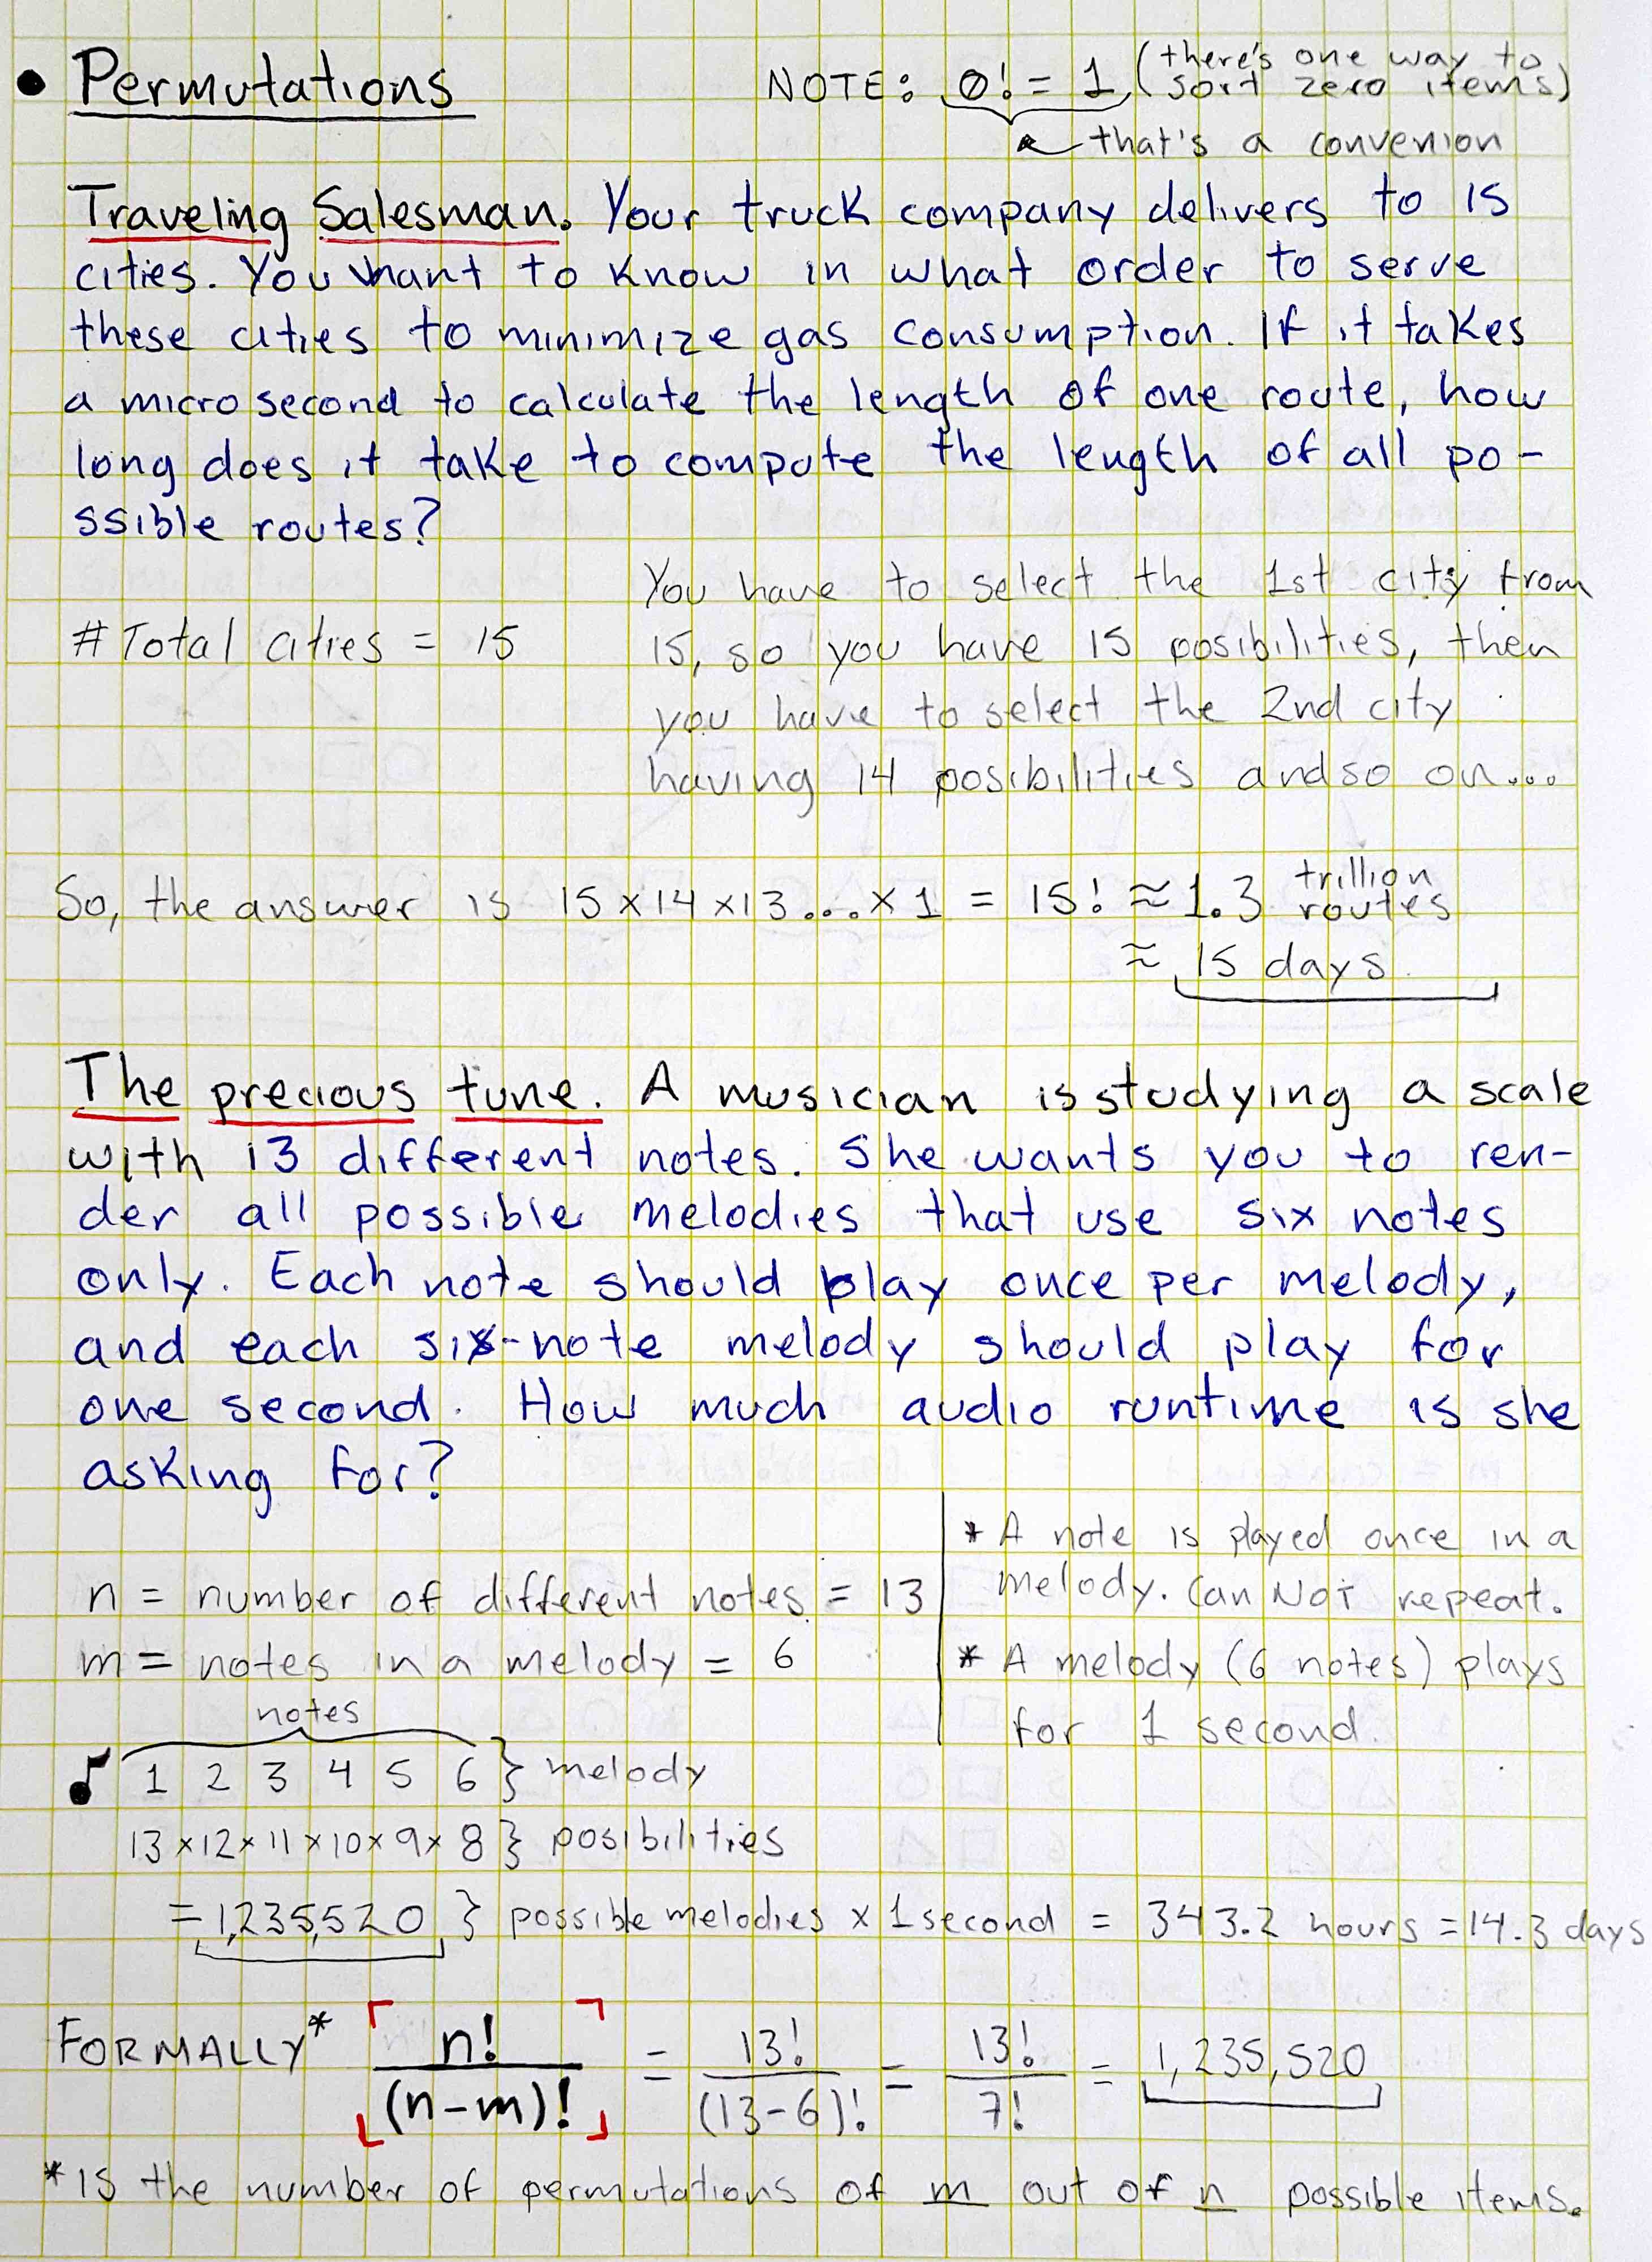 • Permutations
NOTE: 0! = 1 (there's one way to
sort zero items)
that's a convenion
Traveling Salesman. Your truck company delivers to 15
cities. You want to know in what order to serve
these cities to minimize gas consumption. If it takes
a microsecond to calculate the length of one route, how
long does it take to compute the length of all po-
ssible routes?
# Total cities = 15
You have to select the 1st city from
15, so you have 15 posibilities, then
you have to select the 2nd city
having 14 posibilities and so on...
So, the answer is 15 x 14 x 13... x 1 = 15! ≈ 1.3 trillion
routes
≈ 15 days
The precious tune. A musician is studying a scale
with 13 different notes. She wants you to ren-
der all possible melodies that use six notes
only. Each note should play once per melody,
and each six-note melody should play for
one second. How much audio runtime is she
asking for?
n = number of different notes = 13
m = notes in a melody = 6
* A note is played once in a
melody. Can NOT repeat.
* A melody (6 notes) plays
for 1 second.
notes
♪ 1 2 3 4 5 6 } melody
13 x 12 x 11 x 10 x 9 x 8 } posibilities
= 1,235,520 } possible melodies x 1 second = 343.2 hours = 14.3 days
FORMALLY* n!/(n-m)! = 13!/(13-6)! = 13!/7! = 1,235,520
* IS the number of permutations of m out of n possible items.